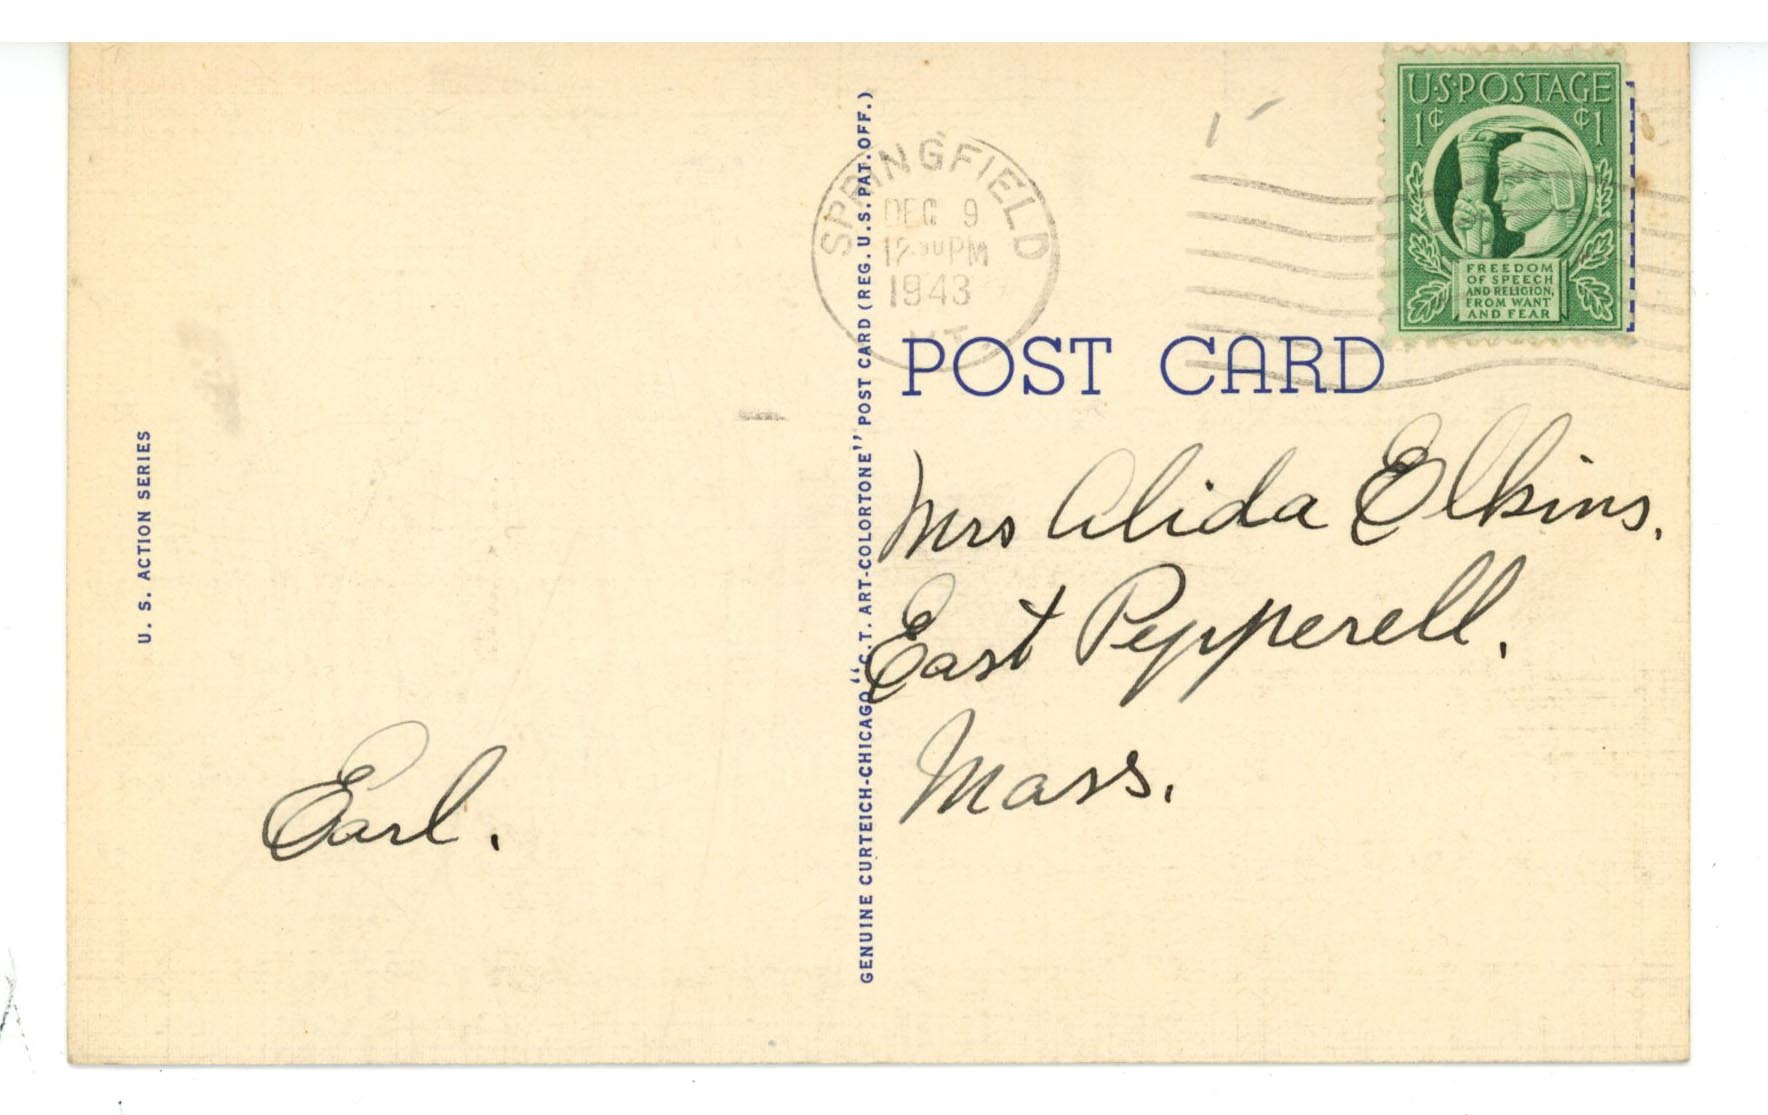 U. S. ACTION SERIES
Earl.
GENUINE CURTEICH-CHICAGO "C. T. ART-COLORTONE" POST CARD (REG. U.S. PAT. OFF.)
SPRINGFIELD
DEC 9
PM
1943
VT.
U·S·POSTAGE
1¢ ¢1
FREEDOM
OF SPEECH
AND RELIGION,
FROM WANT
AND FEAR
POST CARD
Mrs Alida Elkins.
East Pepperell.
Mass.